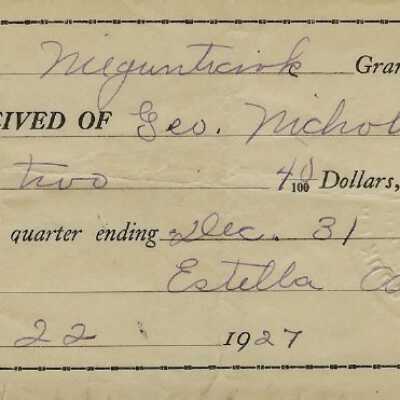 Megunticook Gran
EIVED OF Geo. Nichol
two 40/100 Dollars,
quarter ending Dec. 31
Estella
22 1927